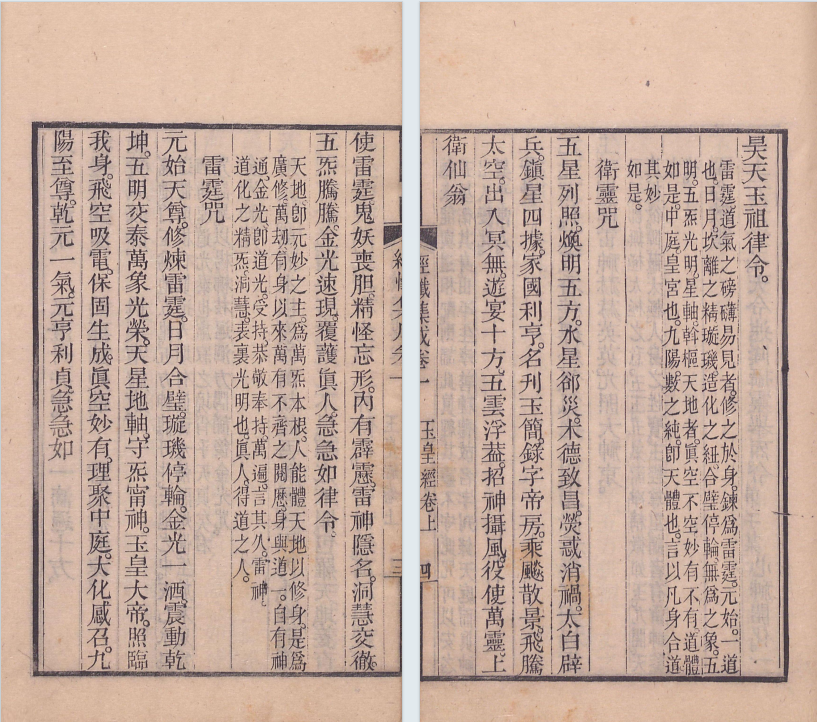 使雷霆鬼妖喪胆。精怪忘形。內有霹靂。雷神隱名。洞慧交徹。
五炁騰騰。金光速現。覆護眞人。急急如律令。
天地卽元妙之主。爲萬炁本根。人能體天地以修身。是爲
廣修萬劫。有身以來萬有不齊之閱歷。身與道一。自有神
通。金光卽道光。受持恭敬奉持。萬遍。言其久。雷神。
道化之精炁。洞慧。表裏光明也。眞人。得道之人。
雷霆咒
元始天尊。修煉雷霆。日月合璧。璇璣停輪。金光一洒。震動乾
坤。五明交泰。萬象光榮。天星地軸。守炁甯神。玉皇大帝。照臨
我身。飛空吸電。保固生成。眞空妙有。理聚中庭。大化感召。九
陽至尊。乾元一氣。元亨利貞。急急如
三
昊天玉祖律令。
雷霆道氣之磅礴易見者。修之於身。鍊爲雷霆。元始。一道
也。日月。坎離之精。璇璣。造化之紐。合璧停輪。無爲之象。五
明。五炁光明。星軸。斡樞天地者。眞空不空。妙有不有。道體
如是。中庭。皇宮也。九陽。數之純。卽天體也。言以凡身合道
其妙
如是。
衛靈咒
五星列照。煥明五方。水星郤災。木德致昌。熒惑消禍。太白辟
兵。鎮星四據。家國利亨。名刊玉簡。錄字帝房。乘飈散景。飛騰
太空。出入冥無。遊宴十方。五雲浮葢。招神攝風。役使萬靈。上
衛仙翁
經懺集成卷一
玉皇經卷上
四